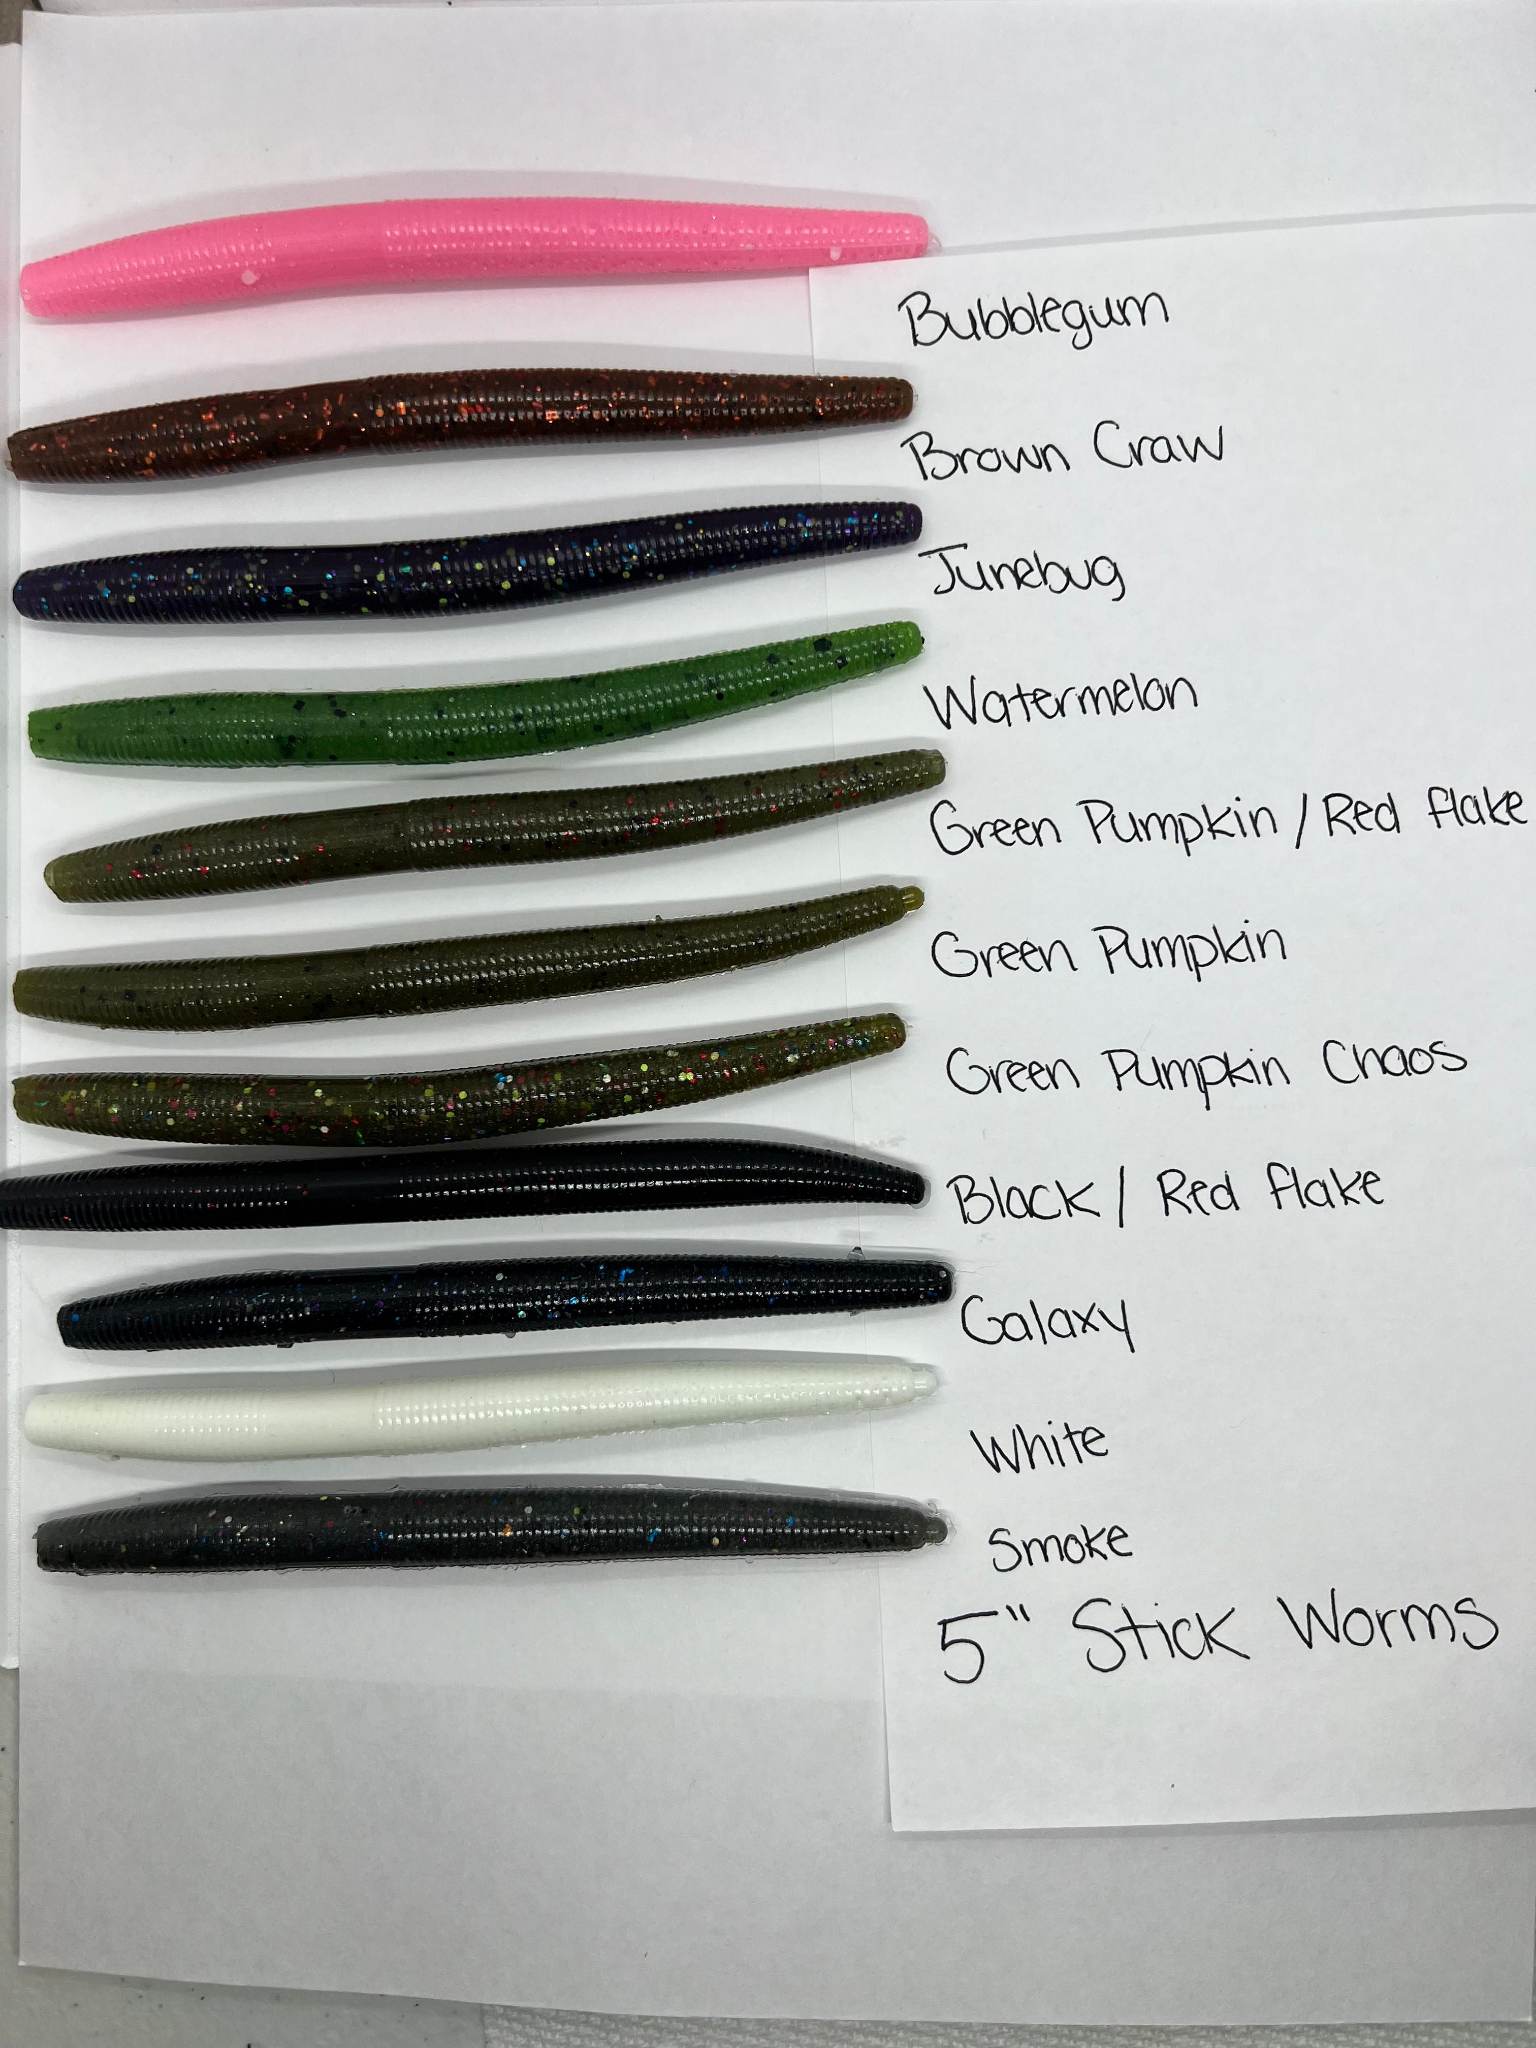 Bubblegum
Brown Craw
Junebug
Watermelon
Green Pumpkin / Red flake
Green Pumpkin
Green Pumpkin Chaos
Black / Red flake
Galaxy
White
Smoke
5" Stick Worms